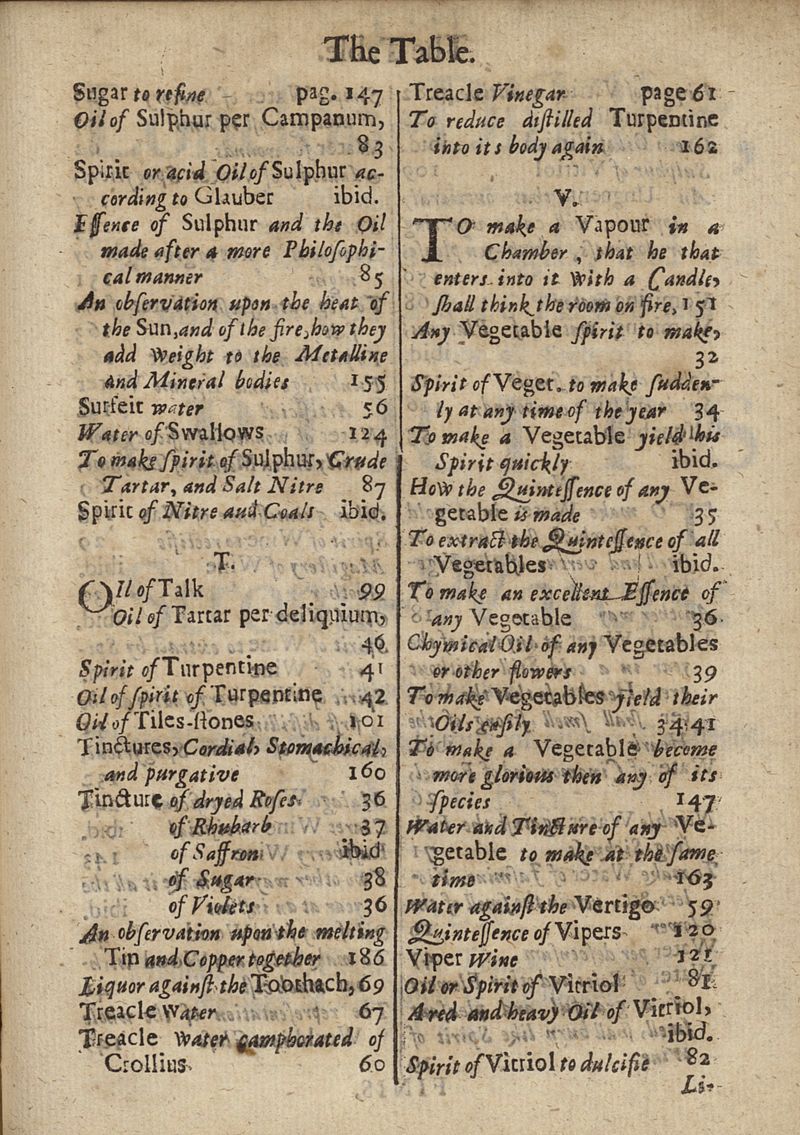 The Table.
Sugar to refine pag. 147
Oil of Sulphur per Campanum,
83
Spirit or acid Oil of Sulphur ac-
cording to Glauber ibid.
Eſſence of Sulphur and the Oil
made after a more Philoſophi-
cal manner 85
An obſervation upon the heat of
the Sun, and of the fire, how they
add weight to the Metalline
and Mineral bodies 155
Surfeit water 56
Water of Swallows 124
To make ſpirit of Sulphur, Crude
Tartar, and Salt Nitre 87
Spirit of Nitre and Coals ibid.
T.
OIl of Talk 99
Oil of Tartar per deliquium,
46
Spirit of Turpentine 41
Oil of ſpirit of Turpentine 42
Oil of Tiles-ſtones 101
Tinctures, Cordial, Stomachical,
and purgative 160
Tincture of dryed Roſes 36
of Rhubarb 37
of Saffron ibid
of Sugar 38
of Violets 36
An obſervation upon the melting
Tin and Copper together 186
Liquor againſt the Toothach, 69
Treacle water 67
Treacle water camphorated of
Crollius 60
Treacle Vinegar page 61
To reduce diſtilled Turpentine
into its body again 162
V.
TO make a Vapour in a
Chamber, that he that
enters into it with a Candle,
ſhall think the room on fire, 151
Any Vegetable ſpirit to make,
32
Spirit of Veget. to make ſudden-
ly at any time of the year 34
To make a Vegetable yield his
Spirit quickly ibid.
How the Quinteſſence of any Ve-
getable is made 35
To extract the Quinteſſence of all
Vegetables ibid.
To make an excellent Eſſence of
any Vegetable 36
Chymical Oil of any Vegetables
or other flowers 39
To make Vegetables yield their
Oils eaſily 34.41
To make a Vegetable become
more glorious then any of its
ſpecies 147
Water and Tincture of any Ve-
getable to make at the ſame
time 163
Water againſt the Vertigo 59
Quinteſſence of Vipers 120
Viper Wine 121
Oil or Spirit of Vitriol 81
A red and heavy Oil of Vitriol,
ibid.
Spirit of Vitriol to dulcifie 82
Li-